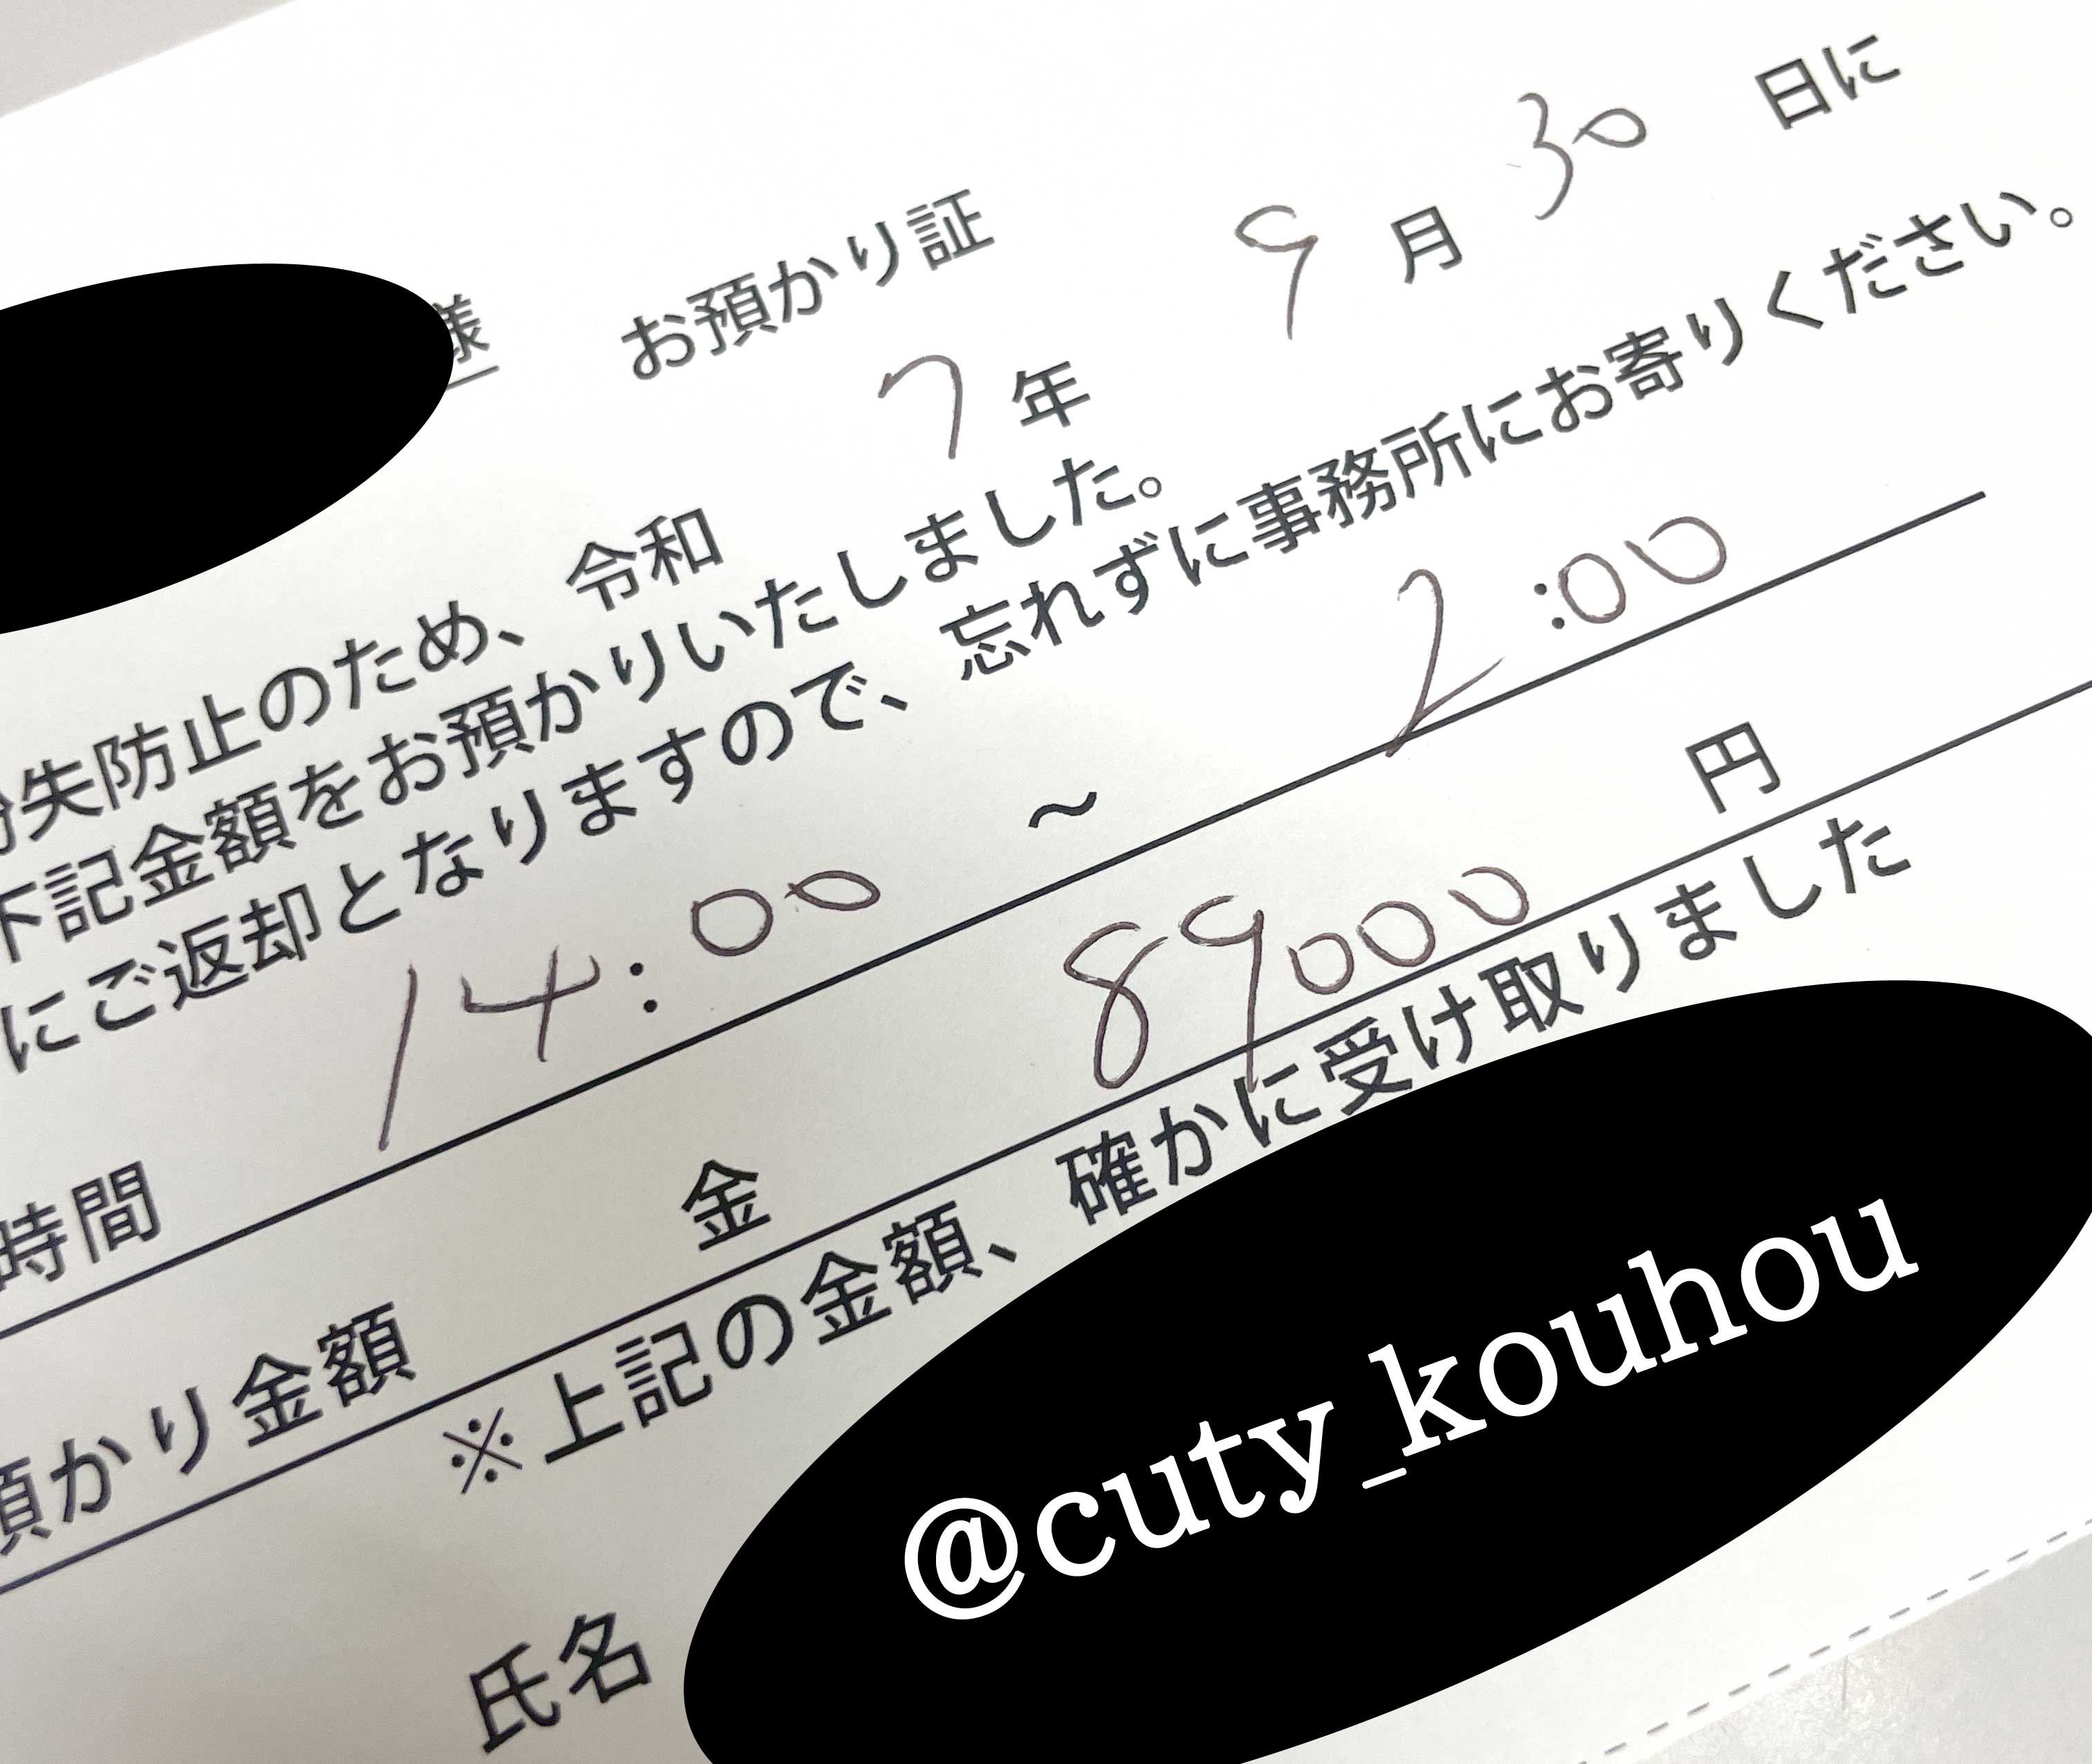 様 お預かり証
紛失防止のため、令和 7 年 9 月 30 日に
下記金額をお預かりいたしました。
にご返却となりますので、忘れずに事務所にお寄りください。
時間 14:00 ～ 2:00
預かり金額 金 89000 円
※上記の金額、確かに受け取りました
氏名
@cuty_kouhou